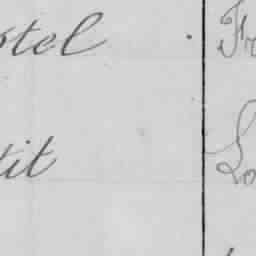 otel Fr
tit Lo